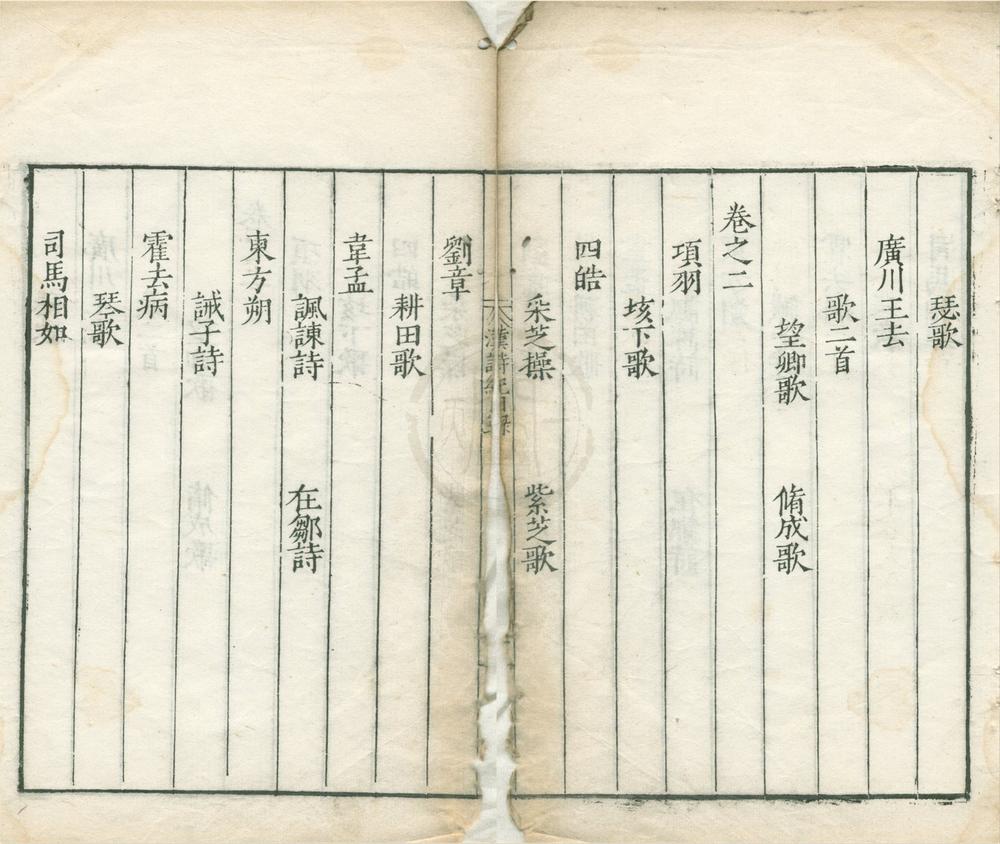 瑟歌
廣川王去
歌二首
望卿歌 脩成歌
卷之二
項羽
垓下歌
四皓
采芝操 紫芝歌
漢詩紀目錄
劉章
耕田歌
韋孟
諷諫詩 在鄒詩
東方朔
誡子詩
霍去病
琴歌
司馬相如